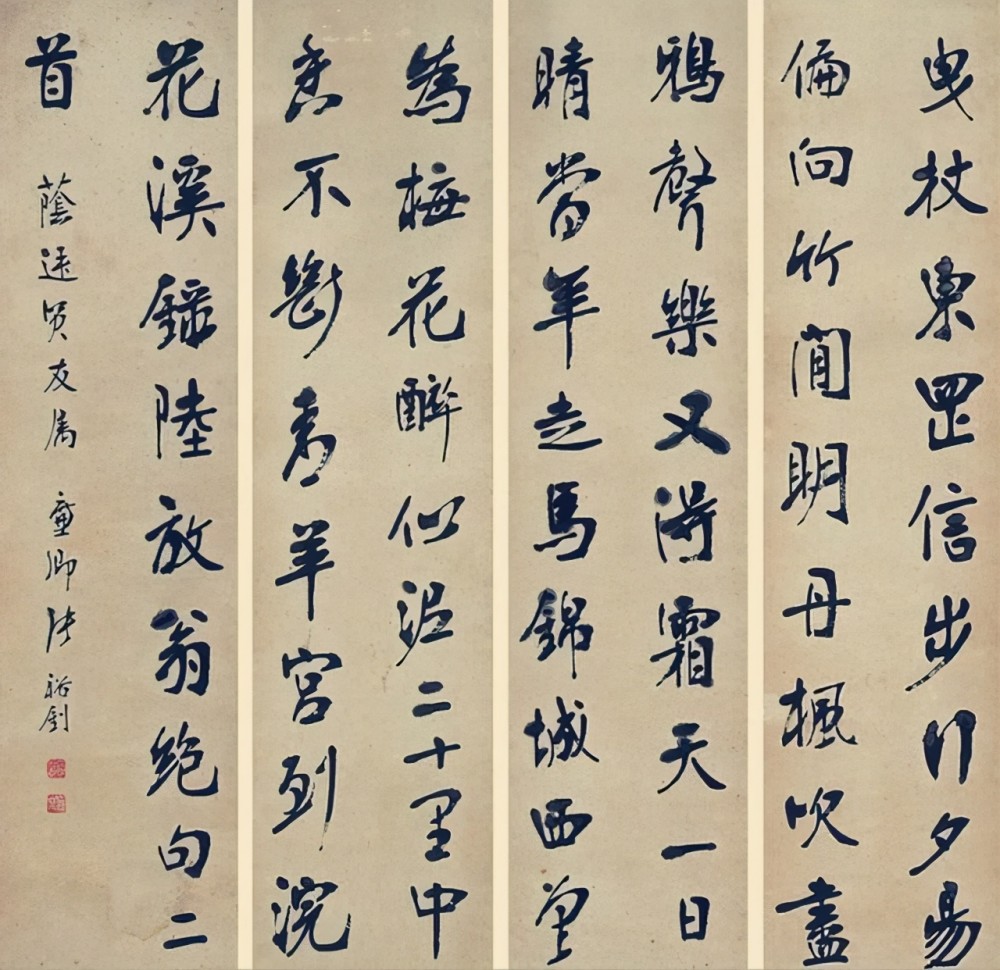 曳杖東罡信步行夕昜
偏向竹閒明丹楓吹盡
鴉聲樂又得霜天一日
晴當年走馬錦城西曾
為梅花醉似泥二十里中
香不斷青羊宮到浣
花溪錄陸放翁絕句二
首 蔭賢友属 廉卿張裕釗